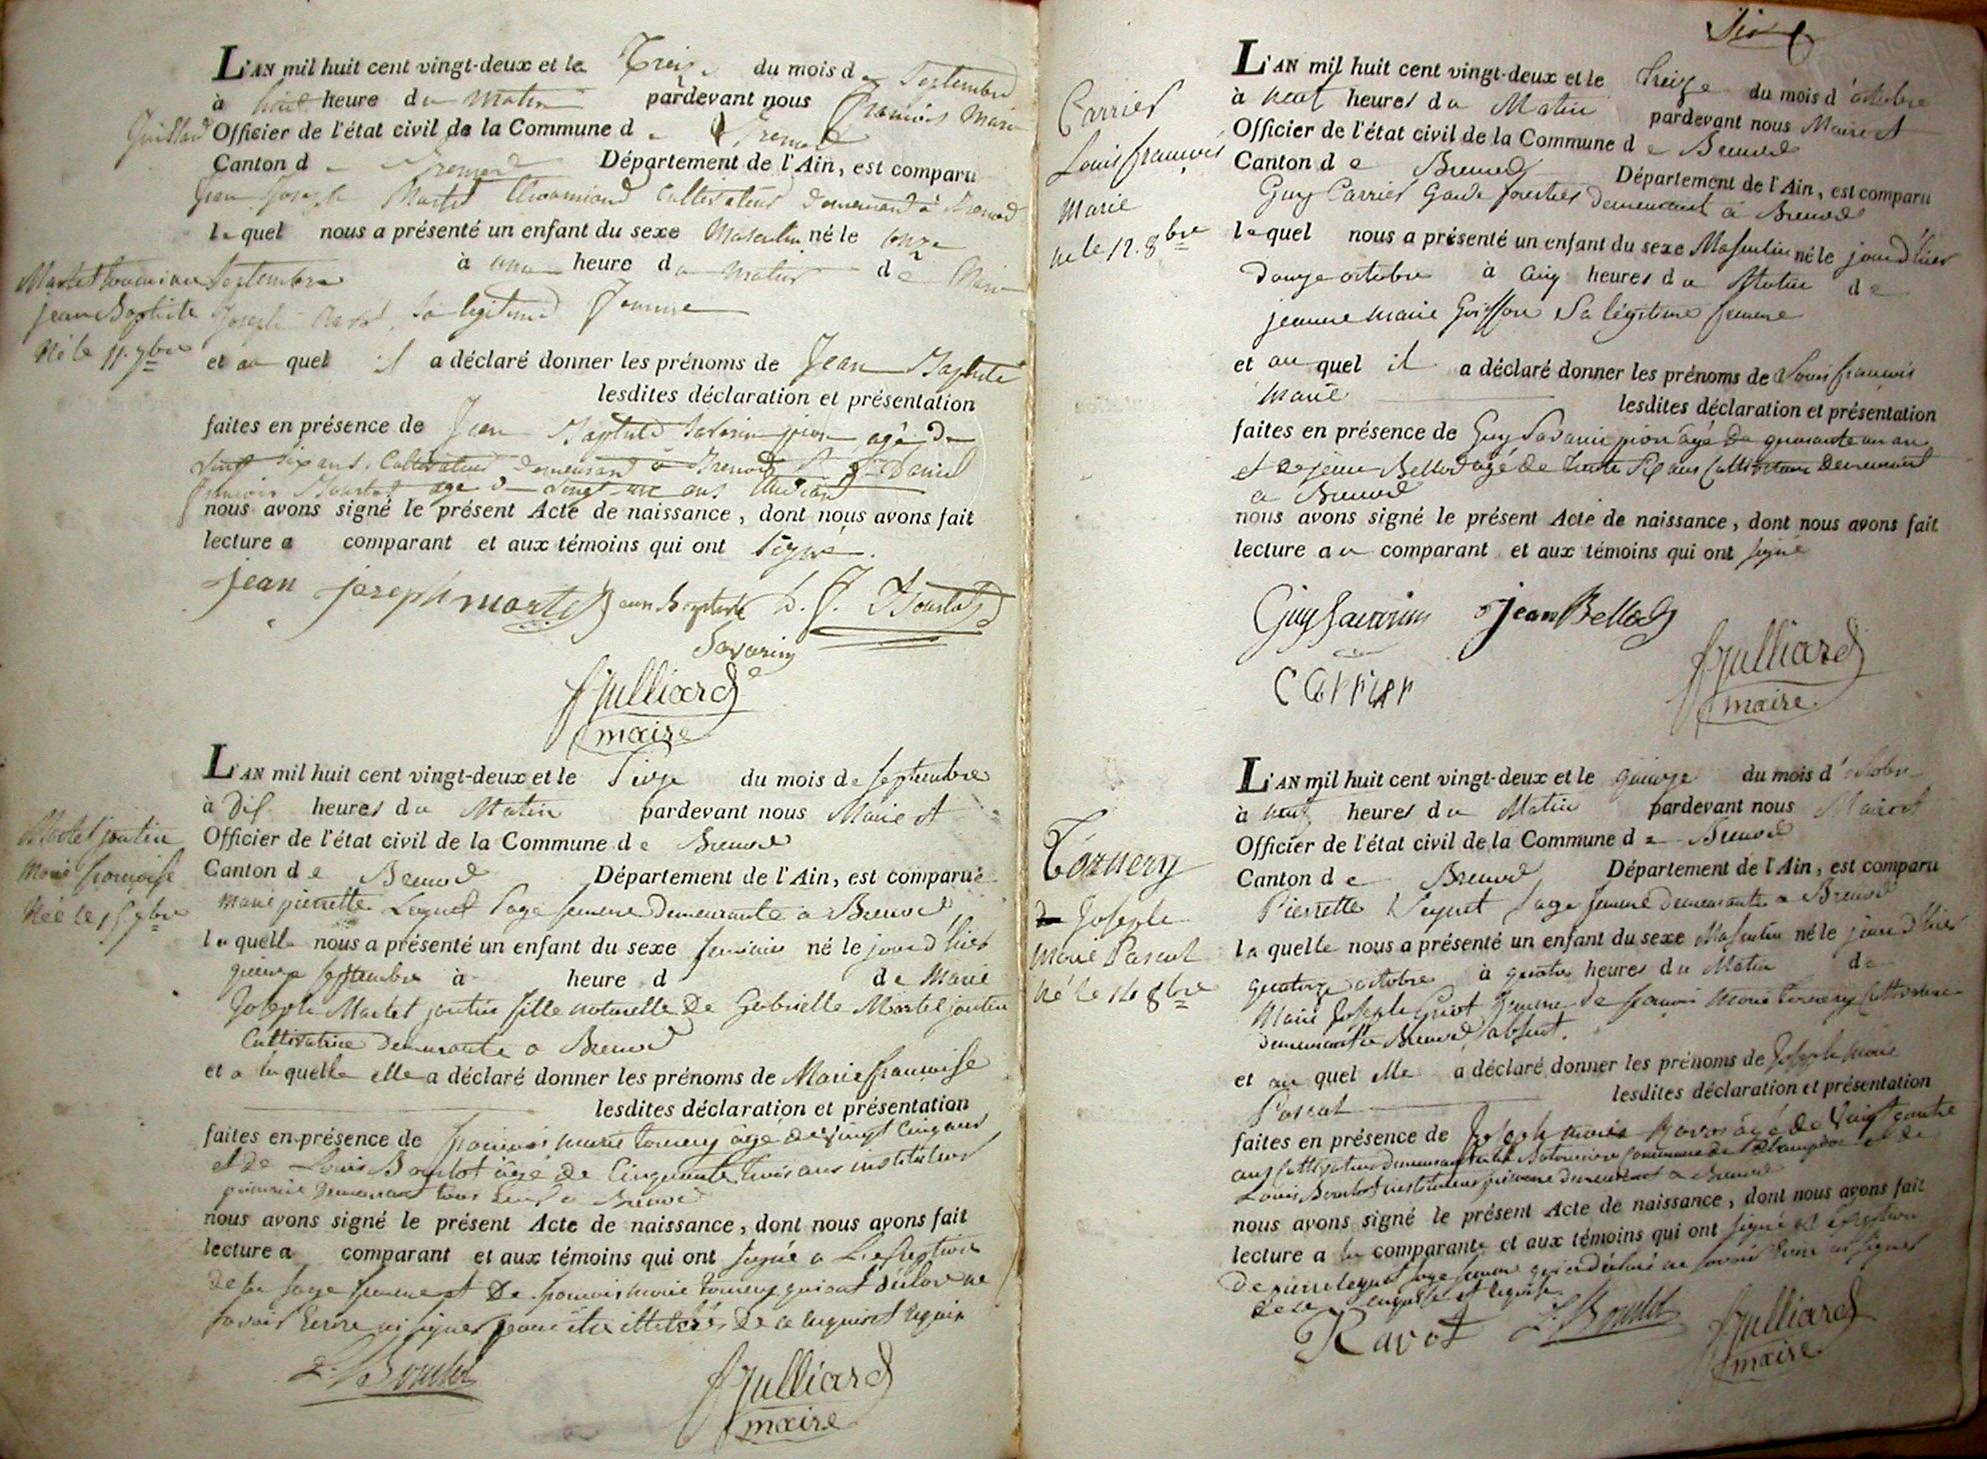 L'AN mil huit cent vingt-deux et le Treize du mois de Septembre
à huit heure du Matin pardevant nous François Marie
Guillard Officier de l'état civil de la Commune de Brenod
Canton de Brenod Département de l'Ain, est comparu
Jean Joseph Martel Cultivateur demeurant à Brenod
lequel nous a présenté un enfant du sexe Masculin né le onze
Septembre à une heure du matin de Marie
Joseph sa légitime femme
Martel
jean Baptiste
Né le 11. 7bre
et au quel il a déclaré donner les prénoms de Jean Baptiste
lesdites déclaration et présentation
faites en présence de Jean Baptiste Savarin pion agé de
vingt six ans, Cultivateur demeurant à Brenod &
françois Bourlot age de vingt ans
nous avons signé le présent Acte de naissance, dont nous avons fait
lecture a comparant et aux témoins qui ont Signé.
jean joseph martel jean Baptiste D. f. Bourlot
Savarin
Julliard
maire
L'AN mil huit cent vingt-deux et le Seize du mois de septembre
à Dix heures du Matin pardevant nous Maire et
Officier de l'état civil de la Commune de Brenod
Canton de Brenod Département de l'Ain, est comparue
Marie pierrette Seynet Sage femme demeurante a Brenod
laquelle nous a présenté un enfant du sexe feminin né le jour d'hier
quinze septembre à heure d de Marie
Joseph Martel jantin fille naturelle de Gabrielle Martel jantin
Cultivatrice demeurante a Brenod
Martel jantin
Marie françoise
Née le 15 7bre
et a laquelle elle a déclaré donner les prénoms de Marie françoise
lesdites déclaration et présentation
faites en présence de françois marie tornery âgé de vingt cinq ans
et de Louis Bourlot âgé de Cinquante trois ans instituteur
primaire demeurant tous deux a Brenod
nous avons signé le présent Acte de naissance, dont nous avons fait
lecture a comparant et aux témoins qui ont signé a L'exception
de la sage femme et De françois marie tornery qui ont déclaré ne
savoir Ecrire ni signer pour être illitérés de ce enquis et requis
L. Bourlot
Julliard
maire
Six
L'AN mil huit cent vingt-deux et le treize du mois d'octobre
à neuf heures du Matin pardevant nous Maire et
Officier de l'état civil de la Commune de Brenod
Canton de Brenod Département de l'Ain, est comparu
Guy Carrier Garde forestier demeurant à Brenod
lequel nous a présenté un enfant du sexe Masculin né le jour d'hier
douze octobre à cinq heures du Matin de
jeanne marie Goiffon Sa légitime femme
Carrier
Louis françois
Marie
né le 12. 8bre
et au quel il a déclaré donner les prénoms de Louis françois
Marie lesdites déclaration et présentation
faites en présence de Guy Savarin pion âgé de quarante un an
et de jean Bellod agé de trente Six ans Cultivateurs demeurant
a Brenod
nous avons signé le présent Acte de naissance, dont nous avons fait
lecture au comparant et aux témoins qui ont signé
Guy Savarin jean Bellod
Carrier
Julliard
maire
L'AN mil huit cent vingt-deux et le quinze du mois d'octobre
à neuf heures du Matin pardevant nous Maire et
Officier de l'état civil de la Commune de Brenod
Canton de Brenod Département de l'Ain, est comparu
Pierrette Seynet Sage femme demeurante a Brenod
laquelle nous a présenté un enfant du sexe Masculin né le jour d'hier
quatorze octobre à quatre heures du Matin de
Marie Joseph femme de françois Marie tornery Cultivateur
demeurant a Brenod absent.
Tornery
Joseph
Marie Pascal
Né le 14 8bre
et au quel elle a déclaré donner les prénoms de Joseph Marie
Pascal lesdites déclaration et présentation
faites en présence de Joseph marie Ravot âgé de Vingt quatre
ans Cultivateur demeurant commune de Champdor et de
Louis Bourlot instituteur primaire demeurant a Brenod
nous avons signé le présent Acte de naissance, dont nous avons fait
lecture a la comparante et aux témoins qui ont signé a l'exception
de pierrette Seynet sage femme qui a déclaré ne savoir Ecrire ni signer
de ce enquise et requise.
Ravot L. Bourlot Julliard
maire